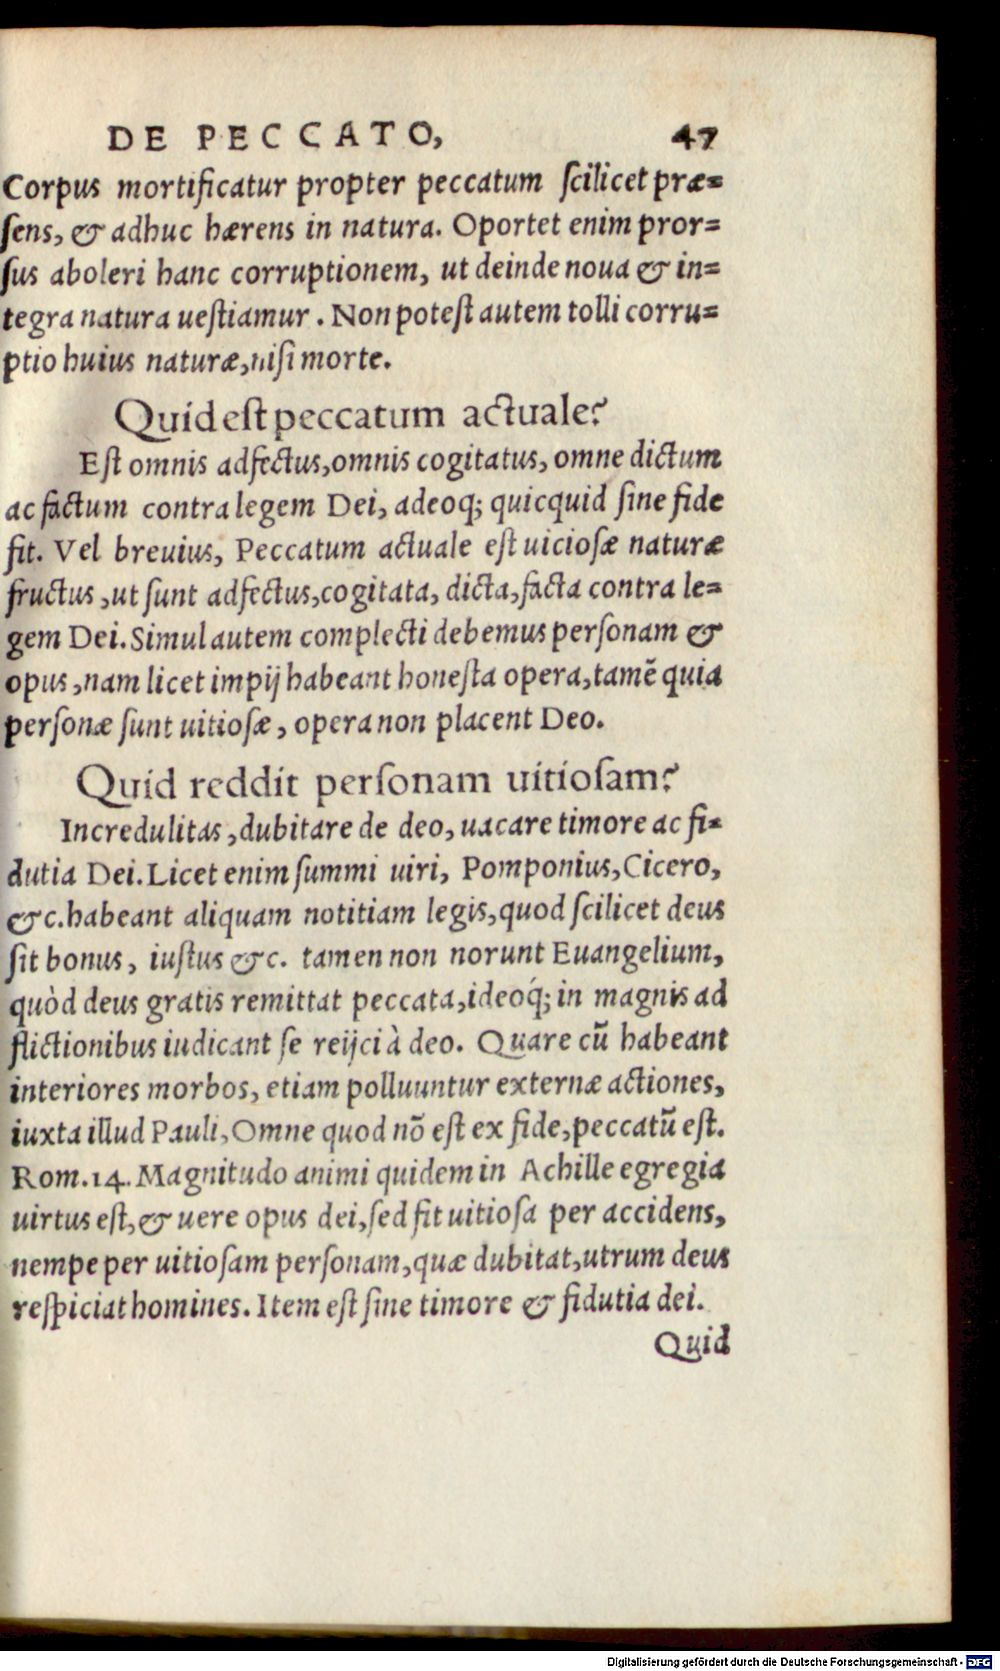 DE PECCATO, 47
Corpus mortificatur propter peccatum scilicet præ=
sens, & adhuc hærens in natura. Oportet enim pror=
sus aboleri hanc corruptionem, ut deinde noua & in=
tegra natura uestiamur. Non potest autem tolli corru=
ptio huius naturæ, nisi morte.
Quid est peccatum actuale?
Est omnis adfectus, omnis cogitatus, omne dictum
ac factum contra legem Dei, adeoq; quicquid sine fide
fit. Vel breuius, Peccatum actuale est uiciosæ naturæ
fructus, ut sunt adfectus, cogitata, dicta, facta contra le=
gem Dei. Simul autem complecti debemus personam &
opus, nam licet impij habeant honesta opera, tamē quia
personæ sunt uitiosæ, opera non placent Deo.
Quid reddit personam uitiosam?
Incredulitas, dubitare de deo, uacare timore ac fi=
dutia Dei. Licet enim summi uiri, Pomponius, Cicero,
&c. habeant aliquam notitiam legis, quod scilicet deus
sit bonus, iustus &c. tamen non norunt Euangelium,
quòd deus gratis remittat peccata, ideoq́; in magnis ad
flictionibus iudicant se reijci à deo. Quare cū habeant
interiores morbos, etiam polluuntur externæ actiones,
iuxta illud Pauli, Omne quod nō est ex fide, peccatū est.
Rom. 14. Magnitudo animi quidem in Achille egregia
uirtus est, & uere opus dei, sed fit uitiosa per accidens,
nempe per uitiosam personam, quæ dubitat, utrum deus
respiciat homines. Item est sine timore & fidutia dei.
Quid
Digitalisierung gefördert durch die Deutsche Forschungsgemeinschaft - DFG